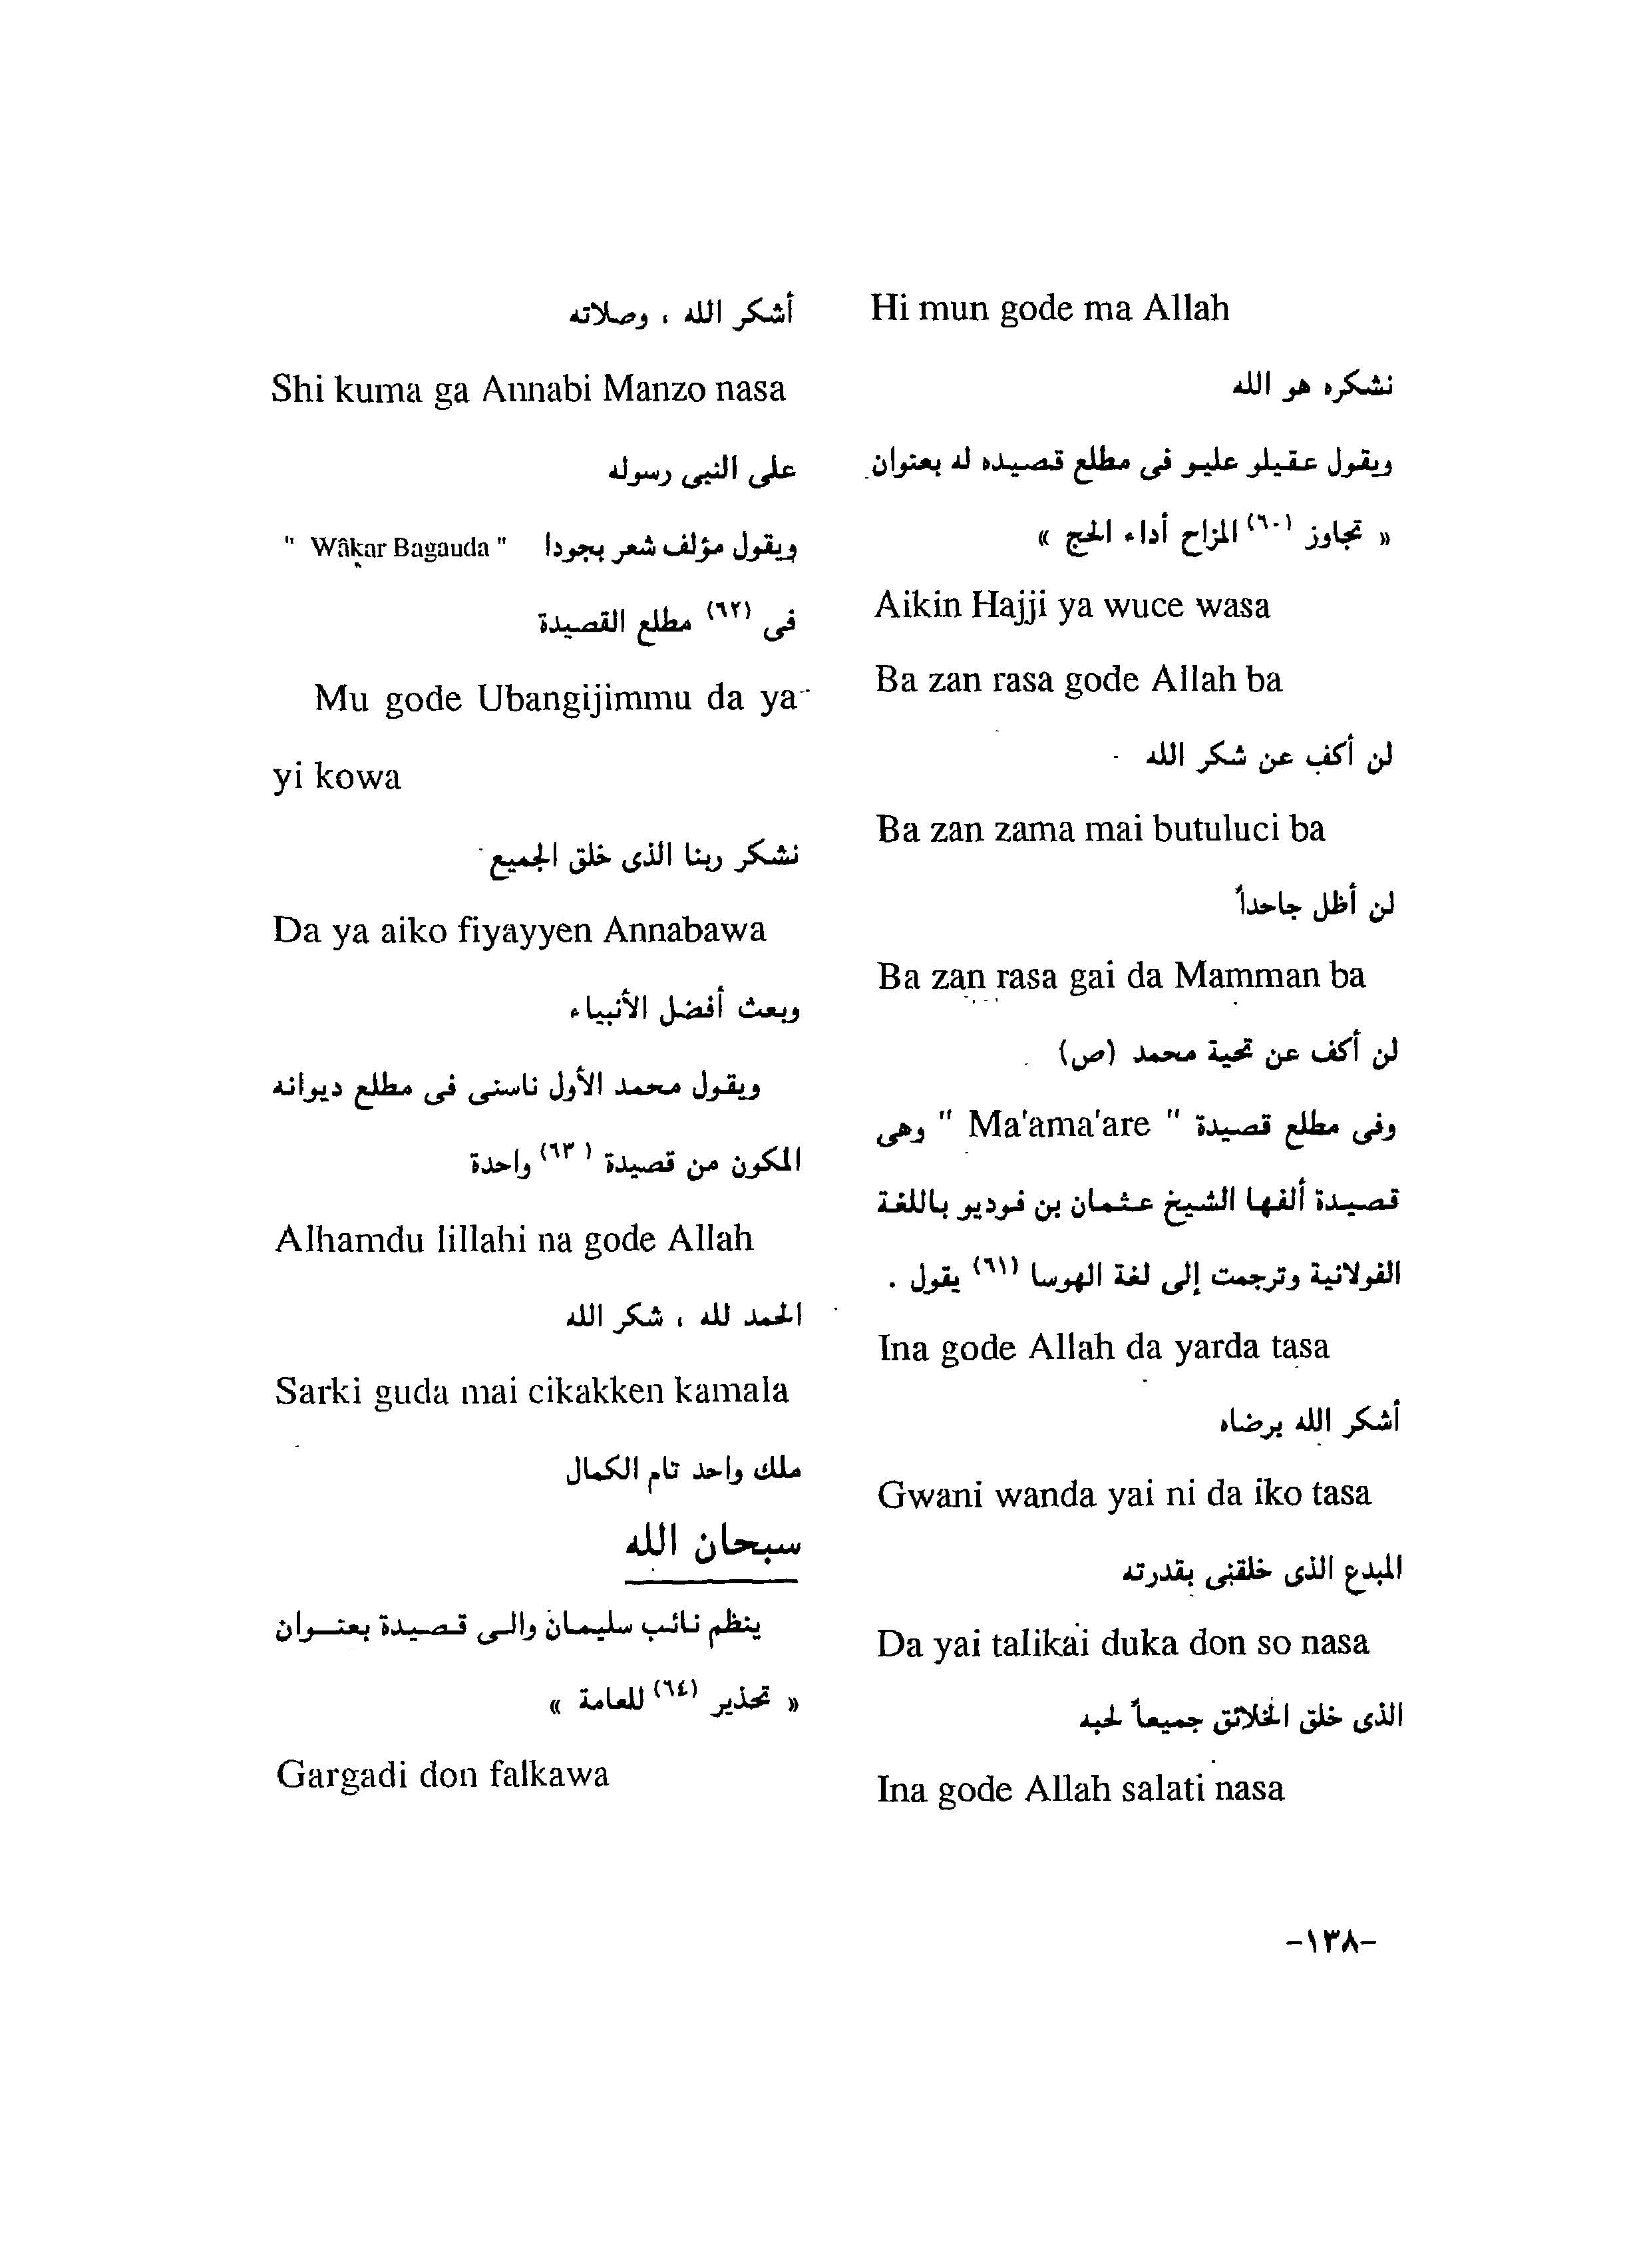 Hi mun gode ma Allah
نشكره هو الله
ويقول عقيلو عليو فى مطلع قصيده له بعنوان
« تجاوز (٦٠) المزاح أداء الحج »
Aikin Hajji ya wuce wasa
Ba zan rasa gode Allah ba
لن أكف عن شكر الله
Ba zan zama mai butuluci ba
لن أظل جاحداً
Ba zan rasa gai da Mamman ba
لن أكف عن تحية محمد (ص)
وفى مطلع قصيدة " Ma'ama'are " وهى
قصيدة ألفها الشيخ عثمان بن فوديو باللغة
الفولانية وترجمت إلى لغة الهوسا (٦١) يقول .
Ina gode Allah da yarda tasa
أشكر الله برضاه
Gwani wanda yai ni da iko tasa
المبدع الذى خلقنى بقدرته
Da yai talikai duka don so nasa
الذى خلق الخلائق جميعاً لحبه
Ina gode Allah salati nasa
أشكر الله ، وصلاته
Shi kuma ga Annabi Manzo nasa
على النبى رسوله
ويقول مؤلف شعر بجودا " Wâkar Bagauda "
فى (٦٢) مطلع القصيدة
Mu gode Ubangijimmu da ya
yi kowa
نشكر ربنا الذى خلق الجميع
Da ya aiko fiyayyen Annabawa
وبعث أفضل الأنبياء
ويقول محمد الأول ناسنى فى مطلع ديوانه
المكون من قصيدة (٦٣) واحدة
Alhamdu lillahi na gode Allah
الحمد لله ، شكر الله
Sarki guda mai cikakken kamala
ملك واحد تام الكمال
سبحان الله
ينظم نائب سليمان والى قصيدة بعنوان
« تحذير (٦٤) للعامة »
Gargadi don falkawa
-١٣٨-